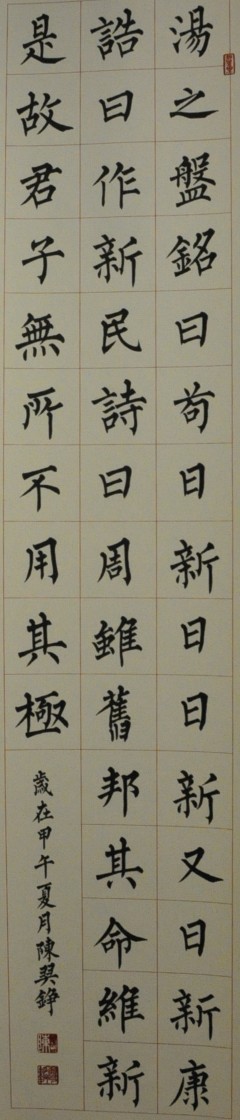 湯之盤銘曰苟日新日日新又日新康
誥曰作新民詩曰周雖舊邦其命維新
是故君子無所不用其極
歲在甲午夏月陳羿錚